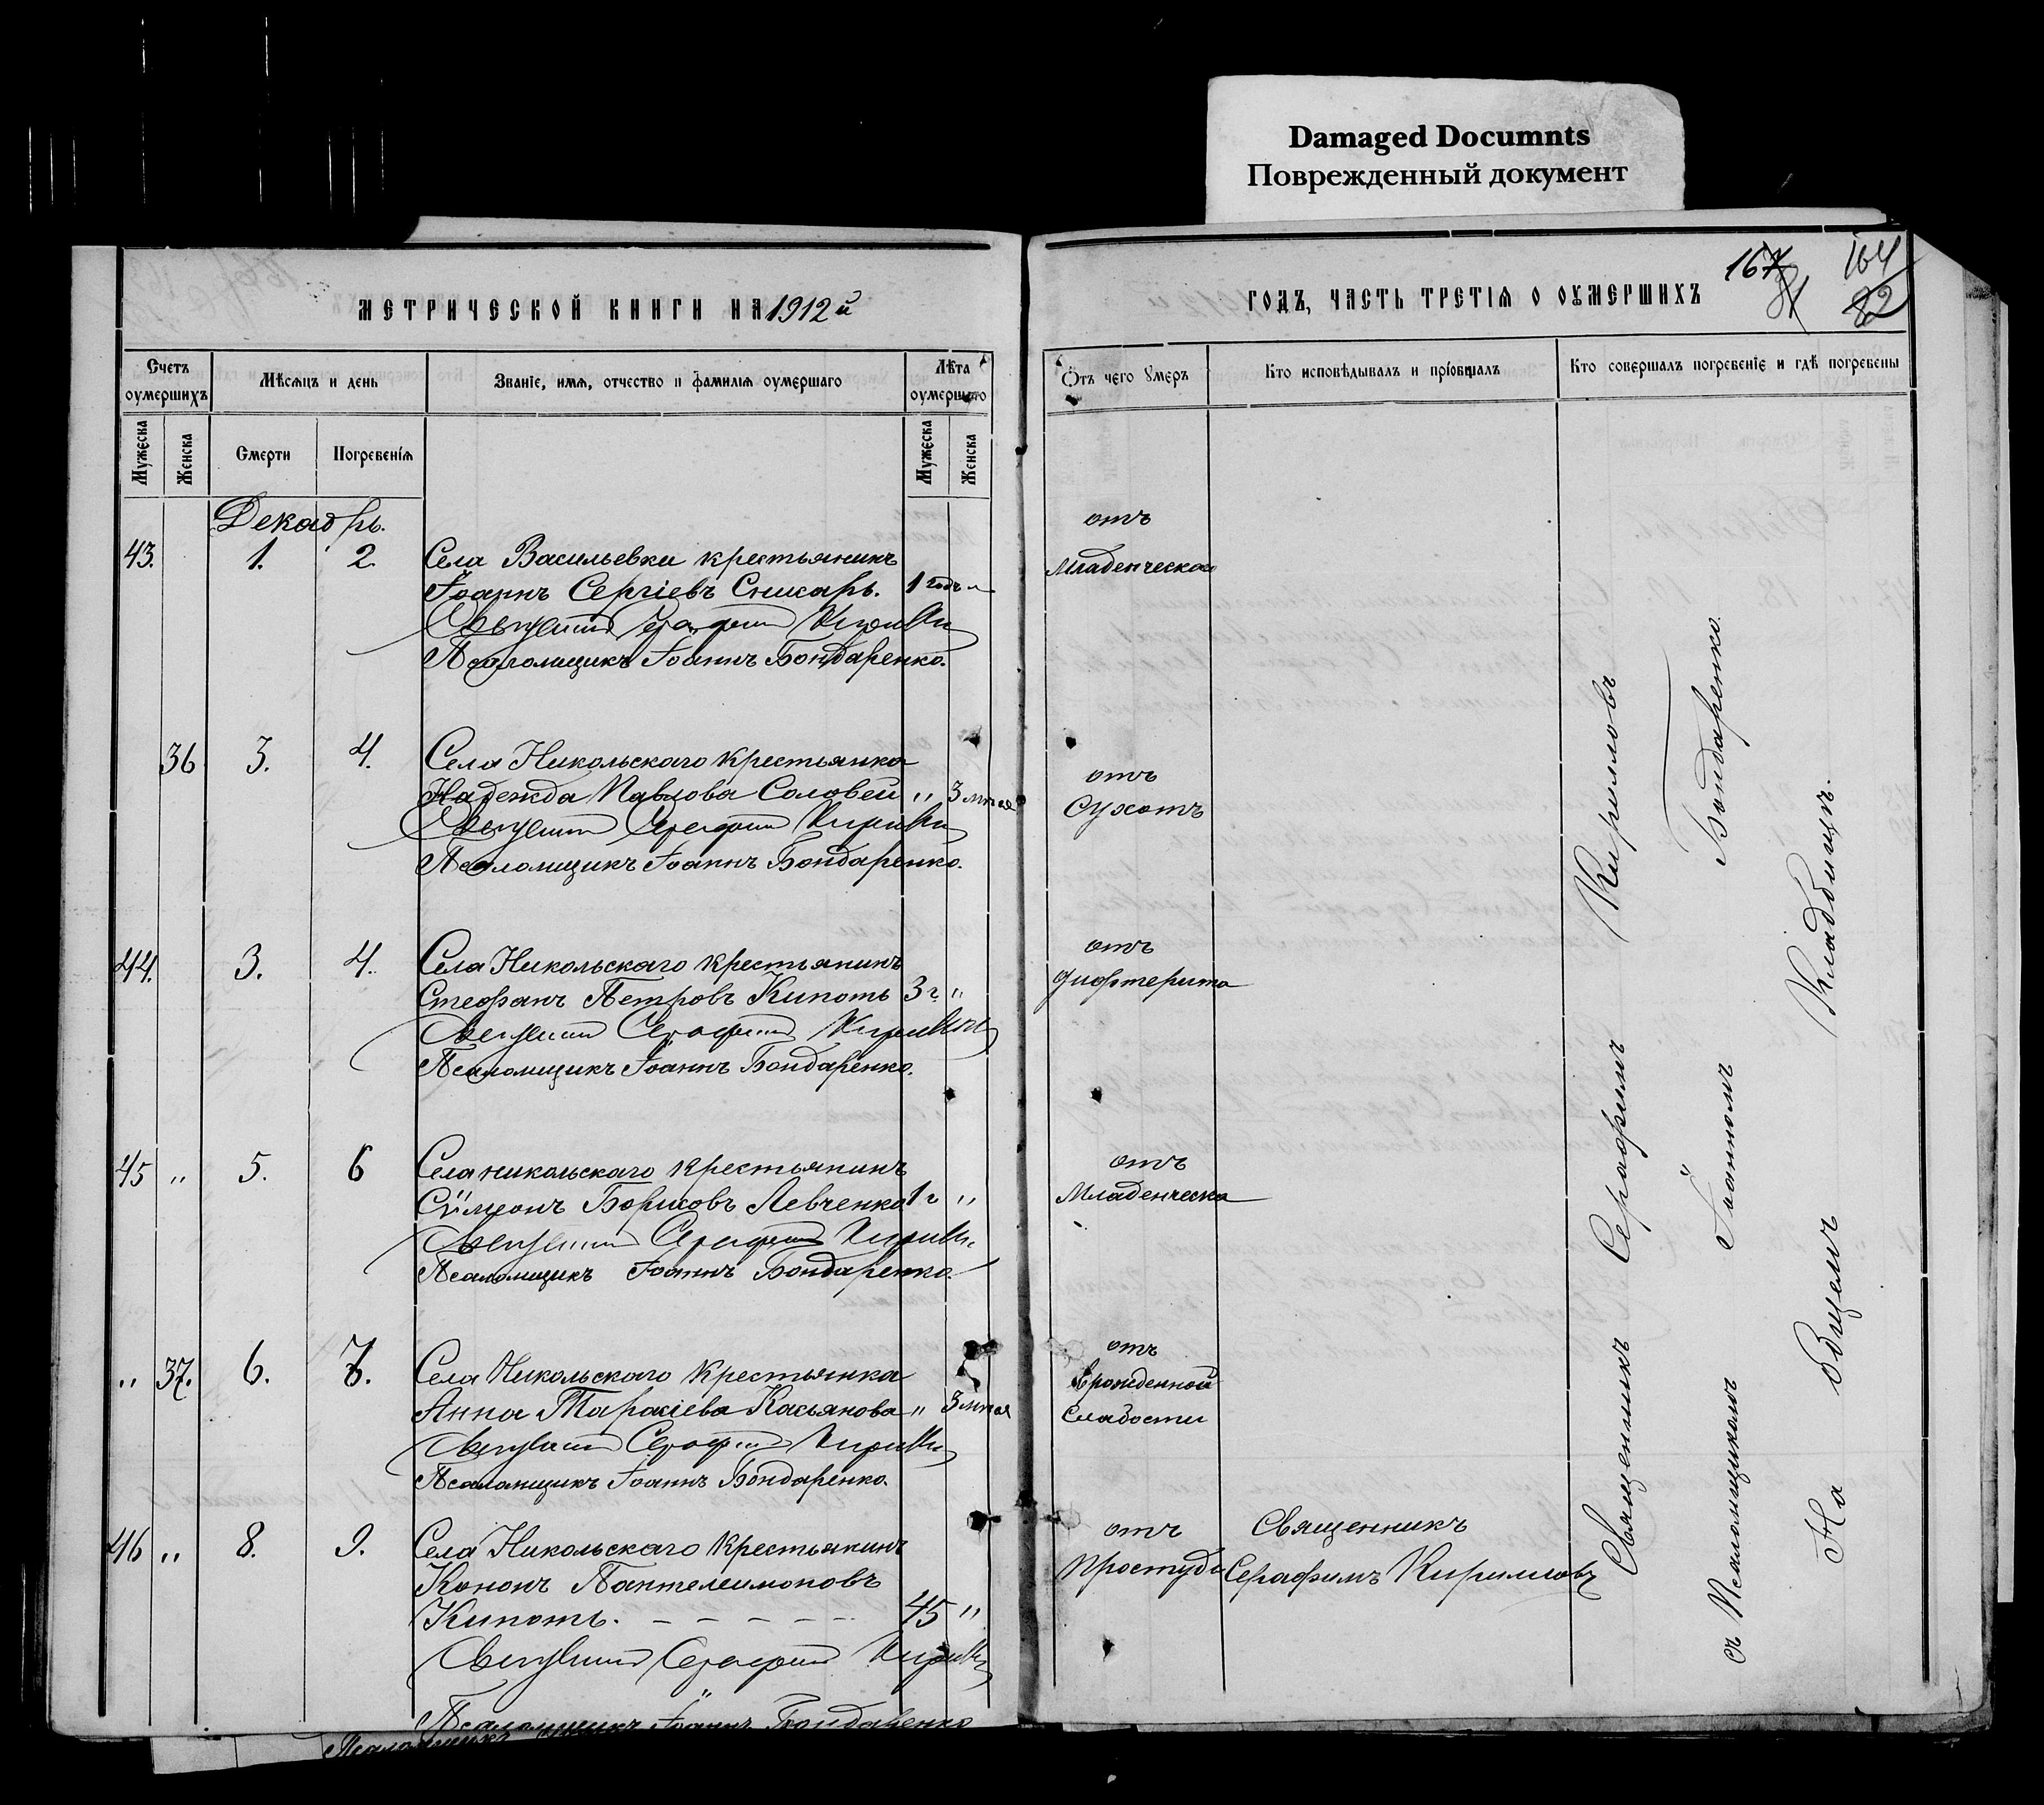 Damaged Documnts
Поврежденный документ
МЕТРИЧЕСКОЙ КНИГИ НА 1912 й
ГОДЪ, ЧАСТЬ ТРЕТІѦ О ОУМЕРШИХЪ
167
81
164
82
Счетъ оумершихъ
Мѣсѧцъ и день
Званіе, имѧ, отчество и фамиліѧ оумершаго
Лѣта оумершаго
Мужеска
Женска
Смерти
Погребеніѧ
Мужеска
Женска
Отъ чего оумеръ
Кто исповѣдывалъ и пріобщалъ
Кто совершалъ погребеніе и гдѣ погребены
Декабрь.
43. 1. 2. Села Васильевки крестьянинъ
Іоаннъ Сергіевъ Сникарь. 1 годъ
Священникъ Серафимъ Кирилловъ
Псаломщикъ Іоаннъ Бондаренко.
отъ
Младенческой
36 3. 4. Села Никольскаго крестьянка
Надежда Павлова Соловей „ 3 мѣся
Священникъ Серафимъ Кирилловъ
Псаломщикъ Іоаннъ Бондаренко.
отъ
Сухотъ
44. 3. 4. Села Никольскаго крестьянинъ
Стефанъ Петровъ Кипоть 3 г. „
Священникъ Серафимъ Кирилловъ
Псаломщикъ Іоаннъ Бондаренко.
отъ
дифтерита
45 „ 5. 6 Села никольскаго крестьянинъ
Сѵмеонъ Борисовъ Левченко 1 г „
Священникъ Серафимъ Кирилловъ
Псаломщикъ Іоаннъ Бондаренко.
отъ
Младенческа
„ 37. 6. 7. Села Никольскаго крестьянка
Анна Тарасіева Касьянова „ 3 мѣся
Священникъ Серафимъ Кирилловъ
Псаломщикъ Іоаннъ Бондаренко.
отъ
врожденной
слабости
46 „ 8. 9. Села Никольскаго крестьянинъ
Кононъ Пантелеимоновъ
Кипоть. – – – – – 45 „
Священникъ Серафимъ Кирилловъ
Псаломщикъ Іоаннъ Бондаренко
отъ
простуды
Священникъ
Серафимъ Кирилловъ
Священникъ Серафимъ Кирилловъ
съ Псаломщикомъ Іоанномъ Бондаренко.
На общемъ кладбищѣ.
Псаломщикъ